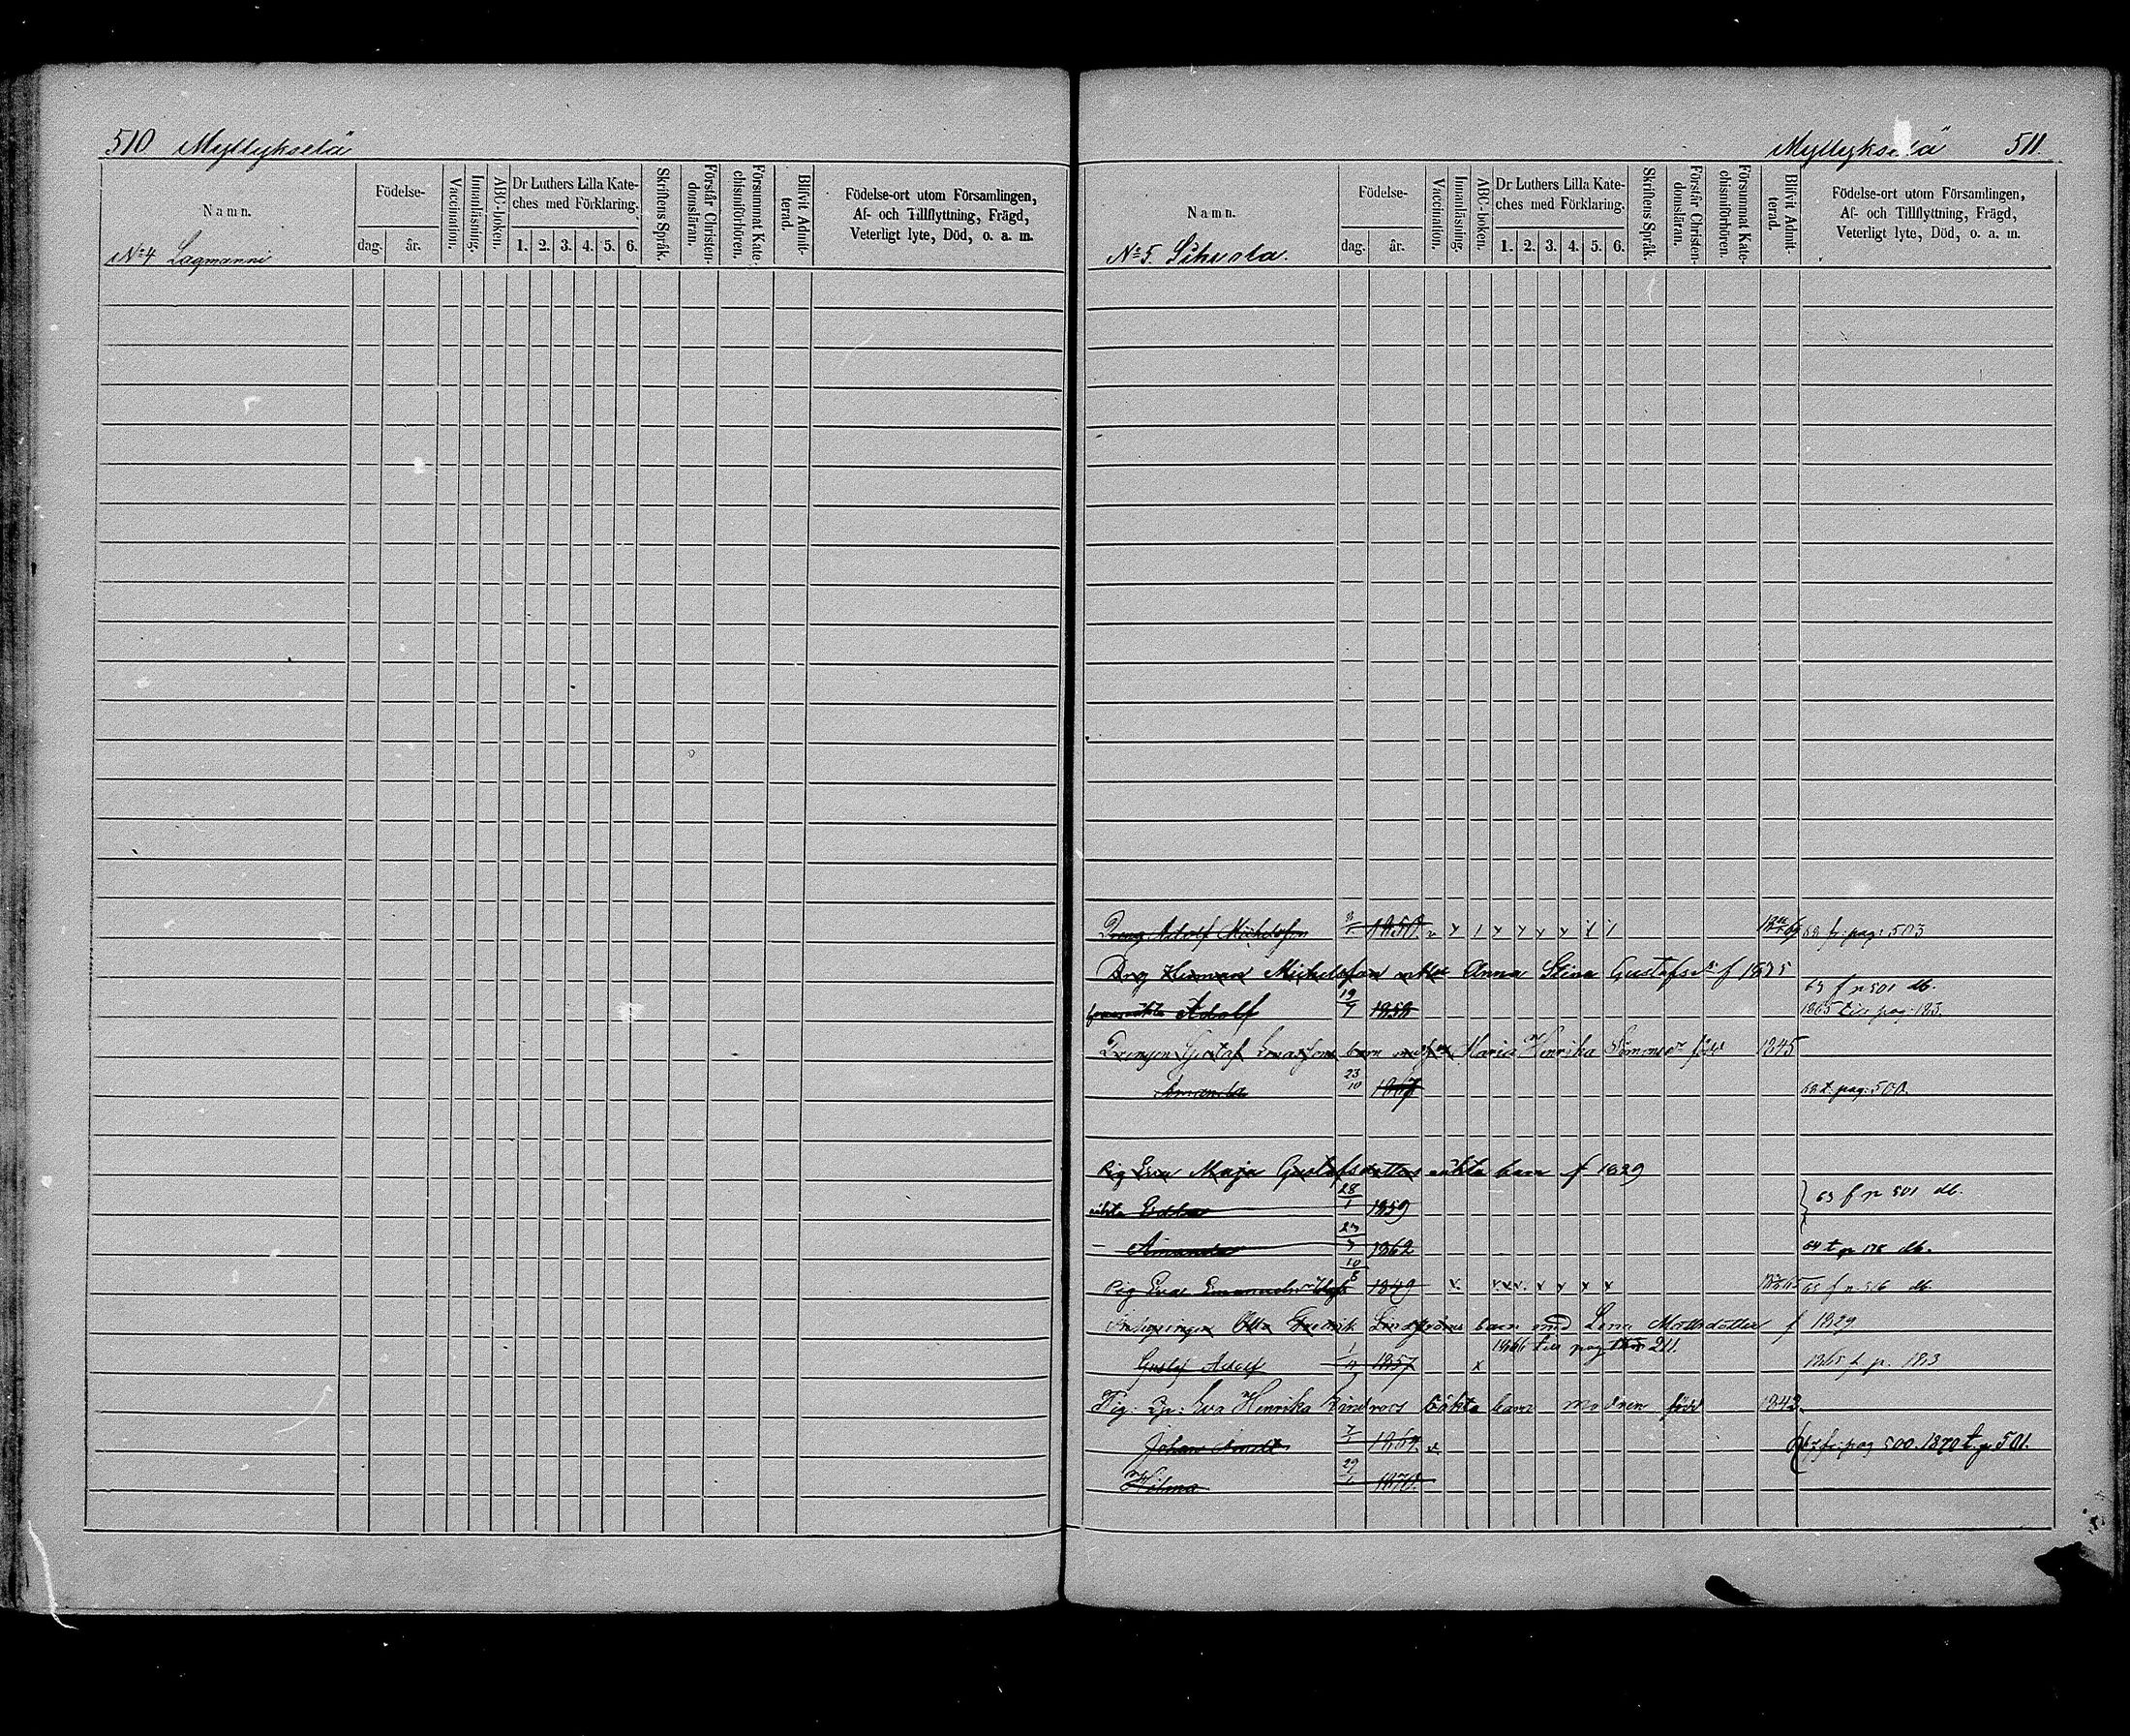 510 Myllykselä
Namn.
Födelse-
dag. år.
Vaccination.
Innanläsning.
ABC-boken.
Dr Luthers Lilla Kate-
ches med Förklaring.
1. 2. 3. 4. 5. 6.
Skriftens Språk.
Förstår Christen-
domsläran.
Försummat Kate-
chismiförhören.
Blifvit Admit-
terad.
Födelse-ort utom Församlingen,
Af- och Tillflyttning, Frägd,
Veterligt lyte, Död, o. a. m.
No 4 Lagmanni
Myllykselä 511.
Namn.
Födelse-
dag. år.
Vaccination.
Innanläsning.
ABC-boken.
Dr Luthers Lilla Kate-
ches med Förklaring.
1. 2. 3. 4. 5. 6.
Skriftens Språk.
Förstår Christen-
domsläran.
Försummat Kate-
chismiförhören.
Blifvit Admit-
terad.
Födelse-ort utom Församlingen,
Af- och Tillflyttning, Frägd,
Veterligt lyte, Död, o. a. m.
No 5.
Dreng Adolf Michelsson 1850. fr: pag: 503
Drg Herman Michelsson Anna Stina Gustafsdr f 1835
63 f p 501 db.
Adolf 19/9 1858 1865 till pag: 183.
Drengen Gustaf barn med Maria Henrika född 1845
Amanda 23/10 1867 68 t. pag: 508.
Pig Eva Maja Gustafsdotters oäkta barn f 1839
oäkta 28/1 1859 63 f p 501 db.
Amanda 1862 64 t p 178 db.
Pig Eva 10/8 1849 f p 516 db.
Otto Fredrik barn med Lena Mattsdotter f 1829
1866 till pag 211.
Gustaf Adolf 1857 x 1865 t p. 183
Pig: Eva Henrika Lindroos oäkta barn Modren född 1843.
Johan 1869. fr: pag 500. 1870 t. p 501.
Hilma 29 1870.